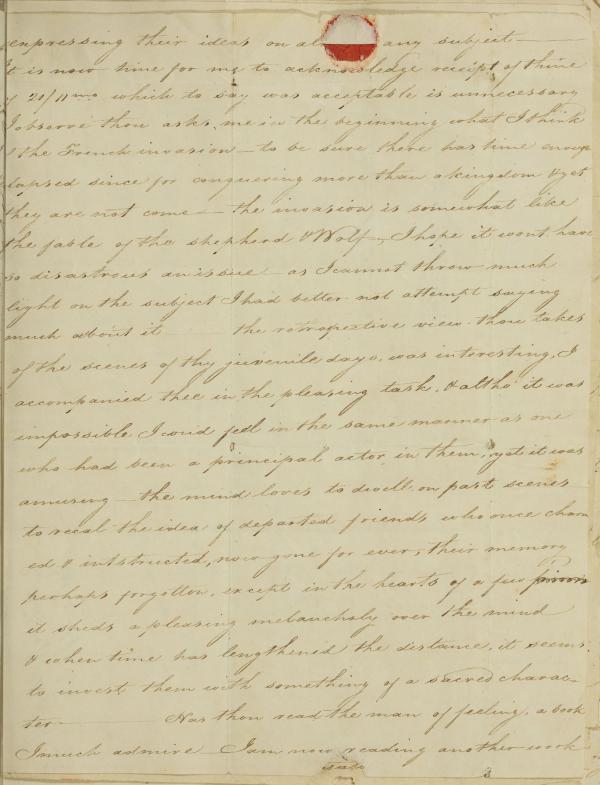 expressing their ideas on al any subject —
It is now time for me to acknowledge receipt of thine
of 20/11mo which to say was acceptable is unnecessary
I observe thou asks me in the beginning what I think
the French invasion — to be sure there has time enough
elapsed since for conquering more than a kingdom & yet
they are not come — the invasion is somewhat like
the fable of the shepherd & Wolf, I hope it wont have
so disastrous an issue — as I cannot throw much
light on the subject I had better not attempt saying
much about it the retrospective view thou takes
of the scenes of thy juvenile days, was interesting, I
accompanied thee in the pleasing task, & altho' it was
impossible I coud feel in the same manner as one
who had been a principal actor in them, yet it was
amusing — the mind loves to dwell on past scenes
to recal the idea of departed friends who once charm
ed & intstructed, now gone for ever, their memory
perhaps forgotten, except in the hearts of a few
it sheds a pleasing melancholy over the mind
& when time has lengthened the distance, it seems
to invest them with something of a sacred charac-
ter — Has thou read the man of feeling, a book
I much admire I am now reading another work